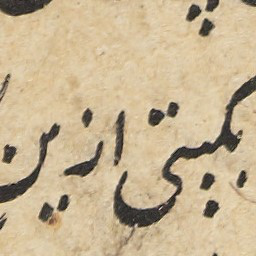 بگیتی ازین